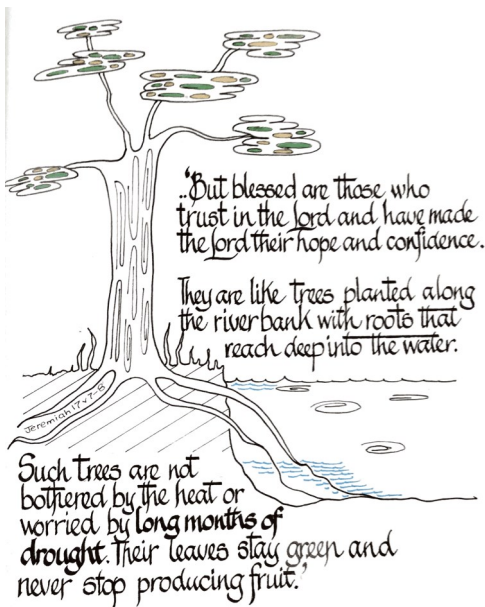 ..'But blessed are those who
trust in the Lord and have made
the Lord their hope and confidence.
They are like trees planted along
the riverbank with roots that
reach deep into the water.
Jeremiah 17 v 7-8
Such trees are not
bothered by the heat or
worried by long months of
drought. Their leaves stay green and
never stop producing fruit.'